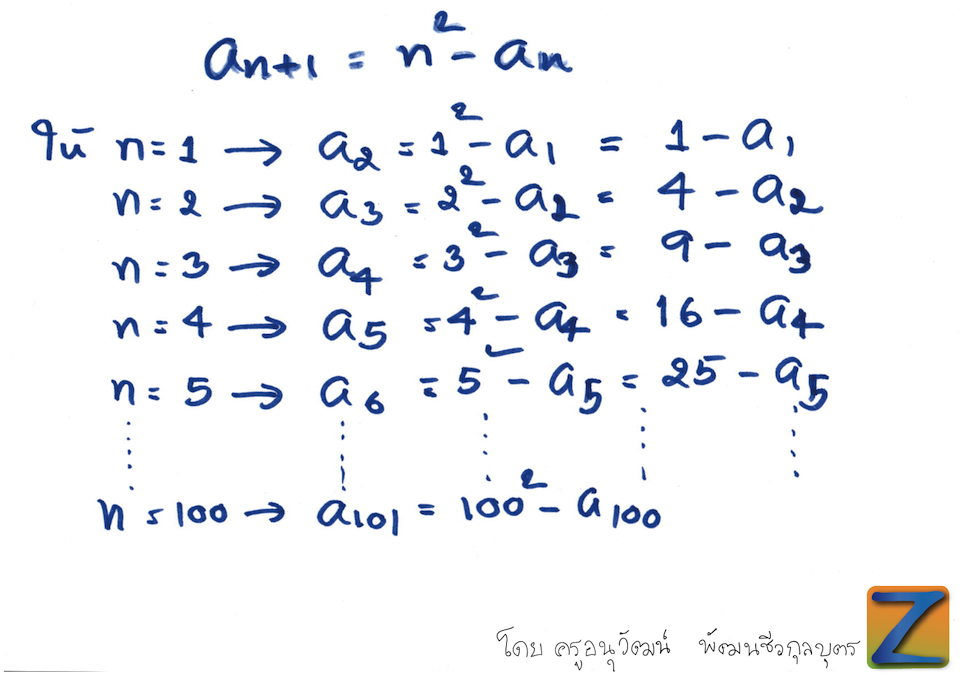 aₙ₊₁ = n² - aₙ
ให้ n = 1 → a₂ = 1² - a₁ = 1 - a₁
n = 2 → a₃ = 2² - a₂ = 4 - a₂
n = 3 → a₄ = 3² - a₃ = 9 - a₃
n = 4 → a₅ = 4² - a₄ = 16 - a₄
n = 5 → a₆ = 5² - a₅ = 25 - a₅
n = 100 → a₁₀₁ = 100² - a₁₀₀
Z
โดย ครูอนุวัฒน์ พัฒนชีวกุลบุตร